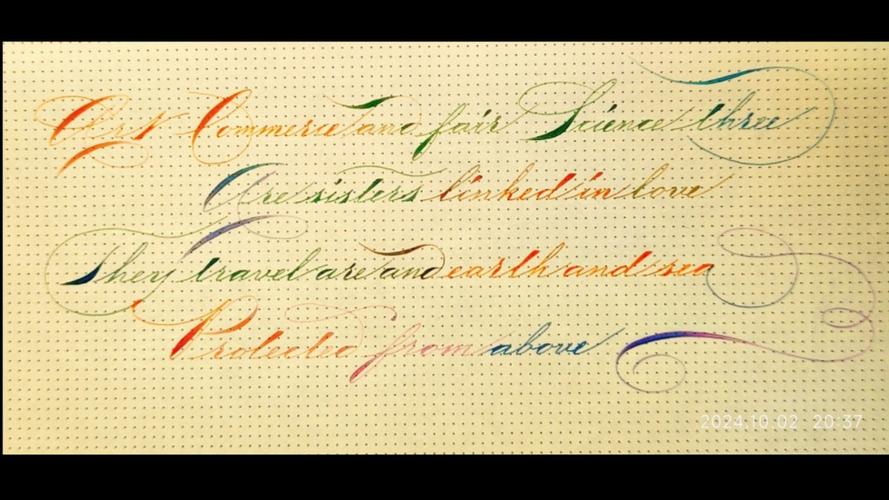 Art Commerce and fair Science three
Are sisters linked in love
They travel are and earth and sea
Protected from above
2024.10.02 20:37